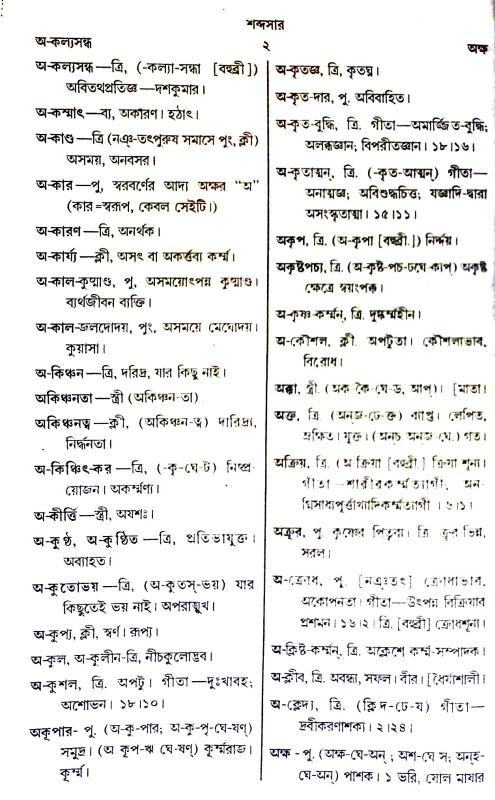 শব্দসার
অ-কল্যসন্ধ
২
অক্ষ
অ-কল্যসন্ধ—ত্রি, (-কল্যা-সন্ধা [বহুব্রী])
অবিতথপ্রতিজ্ঞ—দশকুমার।
অ-কস্মাৎ—ব্য, অকারণ। হঠাৎ।
অ-কাণ্ড—ত্রি (নঞ্-তৎপুরুষ সমাসে পুং, ক্লী)
অসময়, অনবসর।
অ-কার—পু, স্বরবর্ণের আদ্য অক্ষর “অ”
(কার=স্বরূপ, কেবল সেইটি।)
অ-কারণ—ত্রি, অনর্থক।
অ-কার্য্য—ক্লী, অসৎ বা অকর্ত্তব্য কর্ম্ম।
অ-কাল-কুষ্মাণ্ড, পু, অসময়োৎপন্ন কুষ্মাণ্ড।
ব্যর্থজীবন ব্যক্তি।
অ-কাল-জলদোদয়, পুং, অসময়ে মেঘোদয়।
কুয়াসা।
অ-কিঞ্চন—ত্রি, দরিদ্র, যার কিছু নাই।
অকিঞ্চনতা—স্ত্রী (অকিঞ্চন-তা)
অকিঞ্চনত্ব—ক্লী, (অকিঞ্চন-ত্ব) দারিদ্র্য,
নির্দ্ধনতা।
অ-কিঞ্চিৎ-কর—ত্রি, (-কৃ-ঘে-ট) নিষ্প্র-
য়োজন। অকর্ম্মণ্য।
অ-কীর্ত্তি—স্ত্রী, অযশঃ।
অ-কুণ্ঠ, অ-কুণ্ঠিত—ত্রি, প্রতিভাযুক্ত।
অব্যাহত।
অ-কুতোভয়—ত্রি, (অ-কুতস্-ভয়) যার
কিছুতেই ভয় নাই। অপরাঙ্মুখ।
অ-কুপ্য, ক্লী, স্বর্ণ। রূপ্য।
অ-কুল, অ-কুলীন-ত্রি, নীচকুলোদ্ভব।
অ-কুশল, ত্রি. অপটু। গীতা—দুঃখাবহ;
অশোভন। ১৮।১০।
অকূপার- পু. (অ-কু-পার; অ-কু-পৃ-ঘে-ষণ্)
সমুদ্র। (অ কূপ-ঋ ঘে-ষণ্) কূর্ম্মরাজ।
কূর্ম্ম।
অ-কৃতজ্ঞ, ত্রি, কৃতঘ্ন।
অ-কৃত-দার, পু. অবিবাহিত।
অ-কৃত-বুদ্ধি, ত্রি. গীতা—অমার্জ্জিত-বুদ্ধি;
অলব্ধজ্ঞান; বিপরীতজ্ঞান। ১৮।১৬।
অ-কৃতাত্মন্, ত্রি. (-কৃত-আত্মন্) গীতা—
অনাত্মজ্ঞ; অবিশুদ্ধচিত্ত; যজ্ঞাদি-দ্বারা
অসংস্কৃতাত্মা। ১৫।১১।
অকৃপ, ত্রি. (অ-কৃপা [বহুব্রী.]) নির্দ্দয়।
অকৃষ্টপচ্য, ত্রি. (অ-কৃষ্ট-পচ-ঢঘে-ক্যপ্) অকৃষ্ট
ক্ষেত্রে স্বয়ংপক্ক।
অ-কৃষ্ণ কর্ম্মন্, ত্রি. দুষ্কর্ম্মহীন।
অ-কৌশল, ক্লী. অপটুতা। কৌশলাভাব,
বিরোধ।
অক্কা, স্ত্রী. (অক কৈ-ঘে-ড, আপ্)। [মাতা।
অক্ত, ত্রি (অন্জ-ঢে-ক্ত) ব্যাপ্ত। লেপিত,
ম্রক্ষিত। যুক্ত। (অন্চ অন্জ-ঘে.) গত।
অক্রিয়, ত্রি. (অ ক্রিয়া [বহুব্রী.] ক্রিয়া শূন্য।
গীতা —শারীরকর্ম্মত্যাগী, অন-
গ্নিসাধ্যপূর্ত্তাখ্যাদিকর্ম্মত্যাগী। ৬।১।
অক্রূর, পু. কৃষ্ণের পিতৃব্য। ত্রি. ক্রূর ভিন্ন,
সরল।
অ-ক্রোধ, পু. [নঞ্তৎ] ক্রোধাভাব,
অকোপনতা। গীতা—উৎপন্ন বিক্রিয়ার
প্রশমন। ১৬।২। ত্রি. [বহুব্রী] ক্রোধশূন্য।
অ-ক্লিষ্ট-কর্ম্মন্, ত্রি. অক্লেশে কর্ম্ম-সম্পাদক।
অ-ক্লীব, ত্রি. অবন্ধ্য, সফল। বীর। [ধৈর্য্যশালী।
অ-ক্লেদ্য, ত্রি. (ক্লিদ-ঢে-য) গীতা—
দ্রবীকরণাশক্য। ২।২৪।
অক্ষ - পু. (অক্ষ-ঘে-অন্; অশ-ঘে স; অন্হ-
ঘে-অন্) পাশক। ১ ভরি, ষোল মাষার